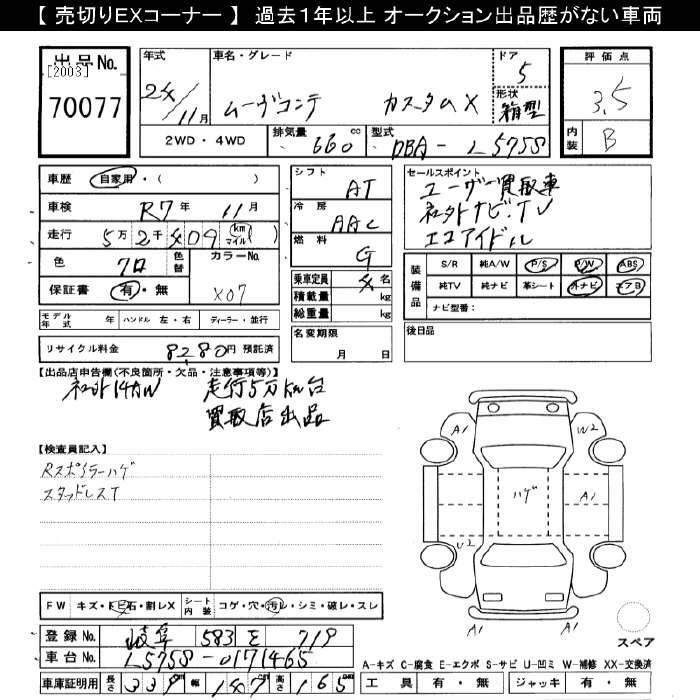 【 売切りEXコーナー 】 過去1年以上 オークション出品歴がない車両
出品No.
[2003]
70077
年式
24/11月
車名・グレード
ムーヴコンテ カスタムX
ドア
5
形状
箱型
評価点
3.5
内装
B
2WD・4WD
排気量 660 cc
型式 DBA-L575S
車歴 自家用・( )
車検 R7年 11月
走行 5万2千409 (km マイル)
色 クロ
色替
カラーNo.
X07
保証書 有・無
シフト AT
冷房 AAC
燃料 G
乗車定員 4名
積載量 kg
総重量 kg
セールスポイント
ユーザー買取車
社外ナビ.TV
エコアイドル
装備品
S/R 純A/W P/S P/W ABS
純TV 純ナビ 革シート 外ナビ エアB
ナビ型番:
モデル年式 年 ハンドル 左・右 ディーラー・並行
リサイクル料金 8280円 預託済
名変期限
月 日
後日品
【出品店申告欄(不良箇所・欠品・注意事項等)】
社外14AW 走行5万km台
買取店出品
【検査員記入】
Rスポイラーハゲ
スタッドレスT
A1
W2
ハゲ
A1
W2
A1
A1
スペア
FW キズ・トビ石・割レX シート内装 コゲ・穴・汚レ・シミ・破レ・スレ
登録No. 岐阜 583 を 719
車台No. L575S-0171465
車庫証明用 長さ 339 幅 147 高さ 165
A-キズ C-腐食 E-エクボ S-サビ U-凹ミ W-補修 XX-交換済
工具 有・無 ジャッキ 有・無